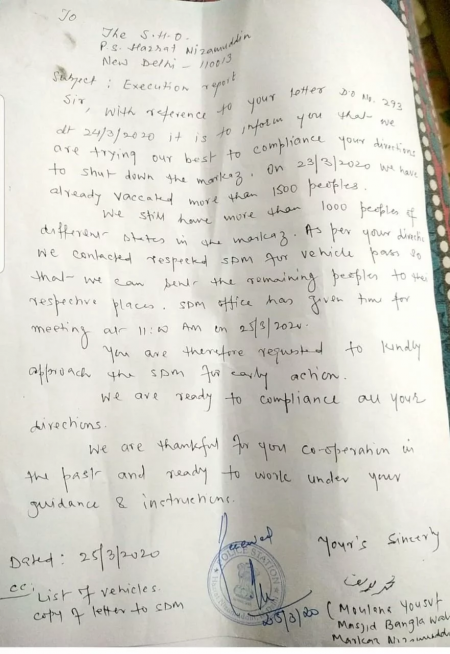 To
The S.H.O.
P.S. Hazrat Nizamuddin
New Delhi - 110013
Subject : Execution report
Sir, With reference to your letter DO No. 293
dt 24/3/2020 it is to inform you that we
are trying our best to compliance your directions
to shut down the markaz. On 23/3/2020 we have
already vaccated more than 1500 peoples.
We still have more than 1000 peoples of
different states in the markaz. As per your
we contacted respected SDM for vehicle pass so
that we can sent the remaining peoples to the
respective places. SDM office has given time for
meeting at 11:00 AM on 25/3/2020.
You are therefore requested to kindly
approach the SDM for early action.
We are ready to compliance all your
directions.
We are thankful for you co-operation in
the past and ready to work under your
guidance & instructions.
Received
Your's Sincerly
Dated : 25/3/2020
cc: List of vehicles.
copy of letter to SDM
25/3/20
(Moulana Yousuf
Masjid Bangla
Markaz Nizamuddin